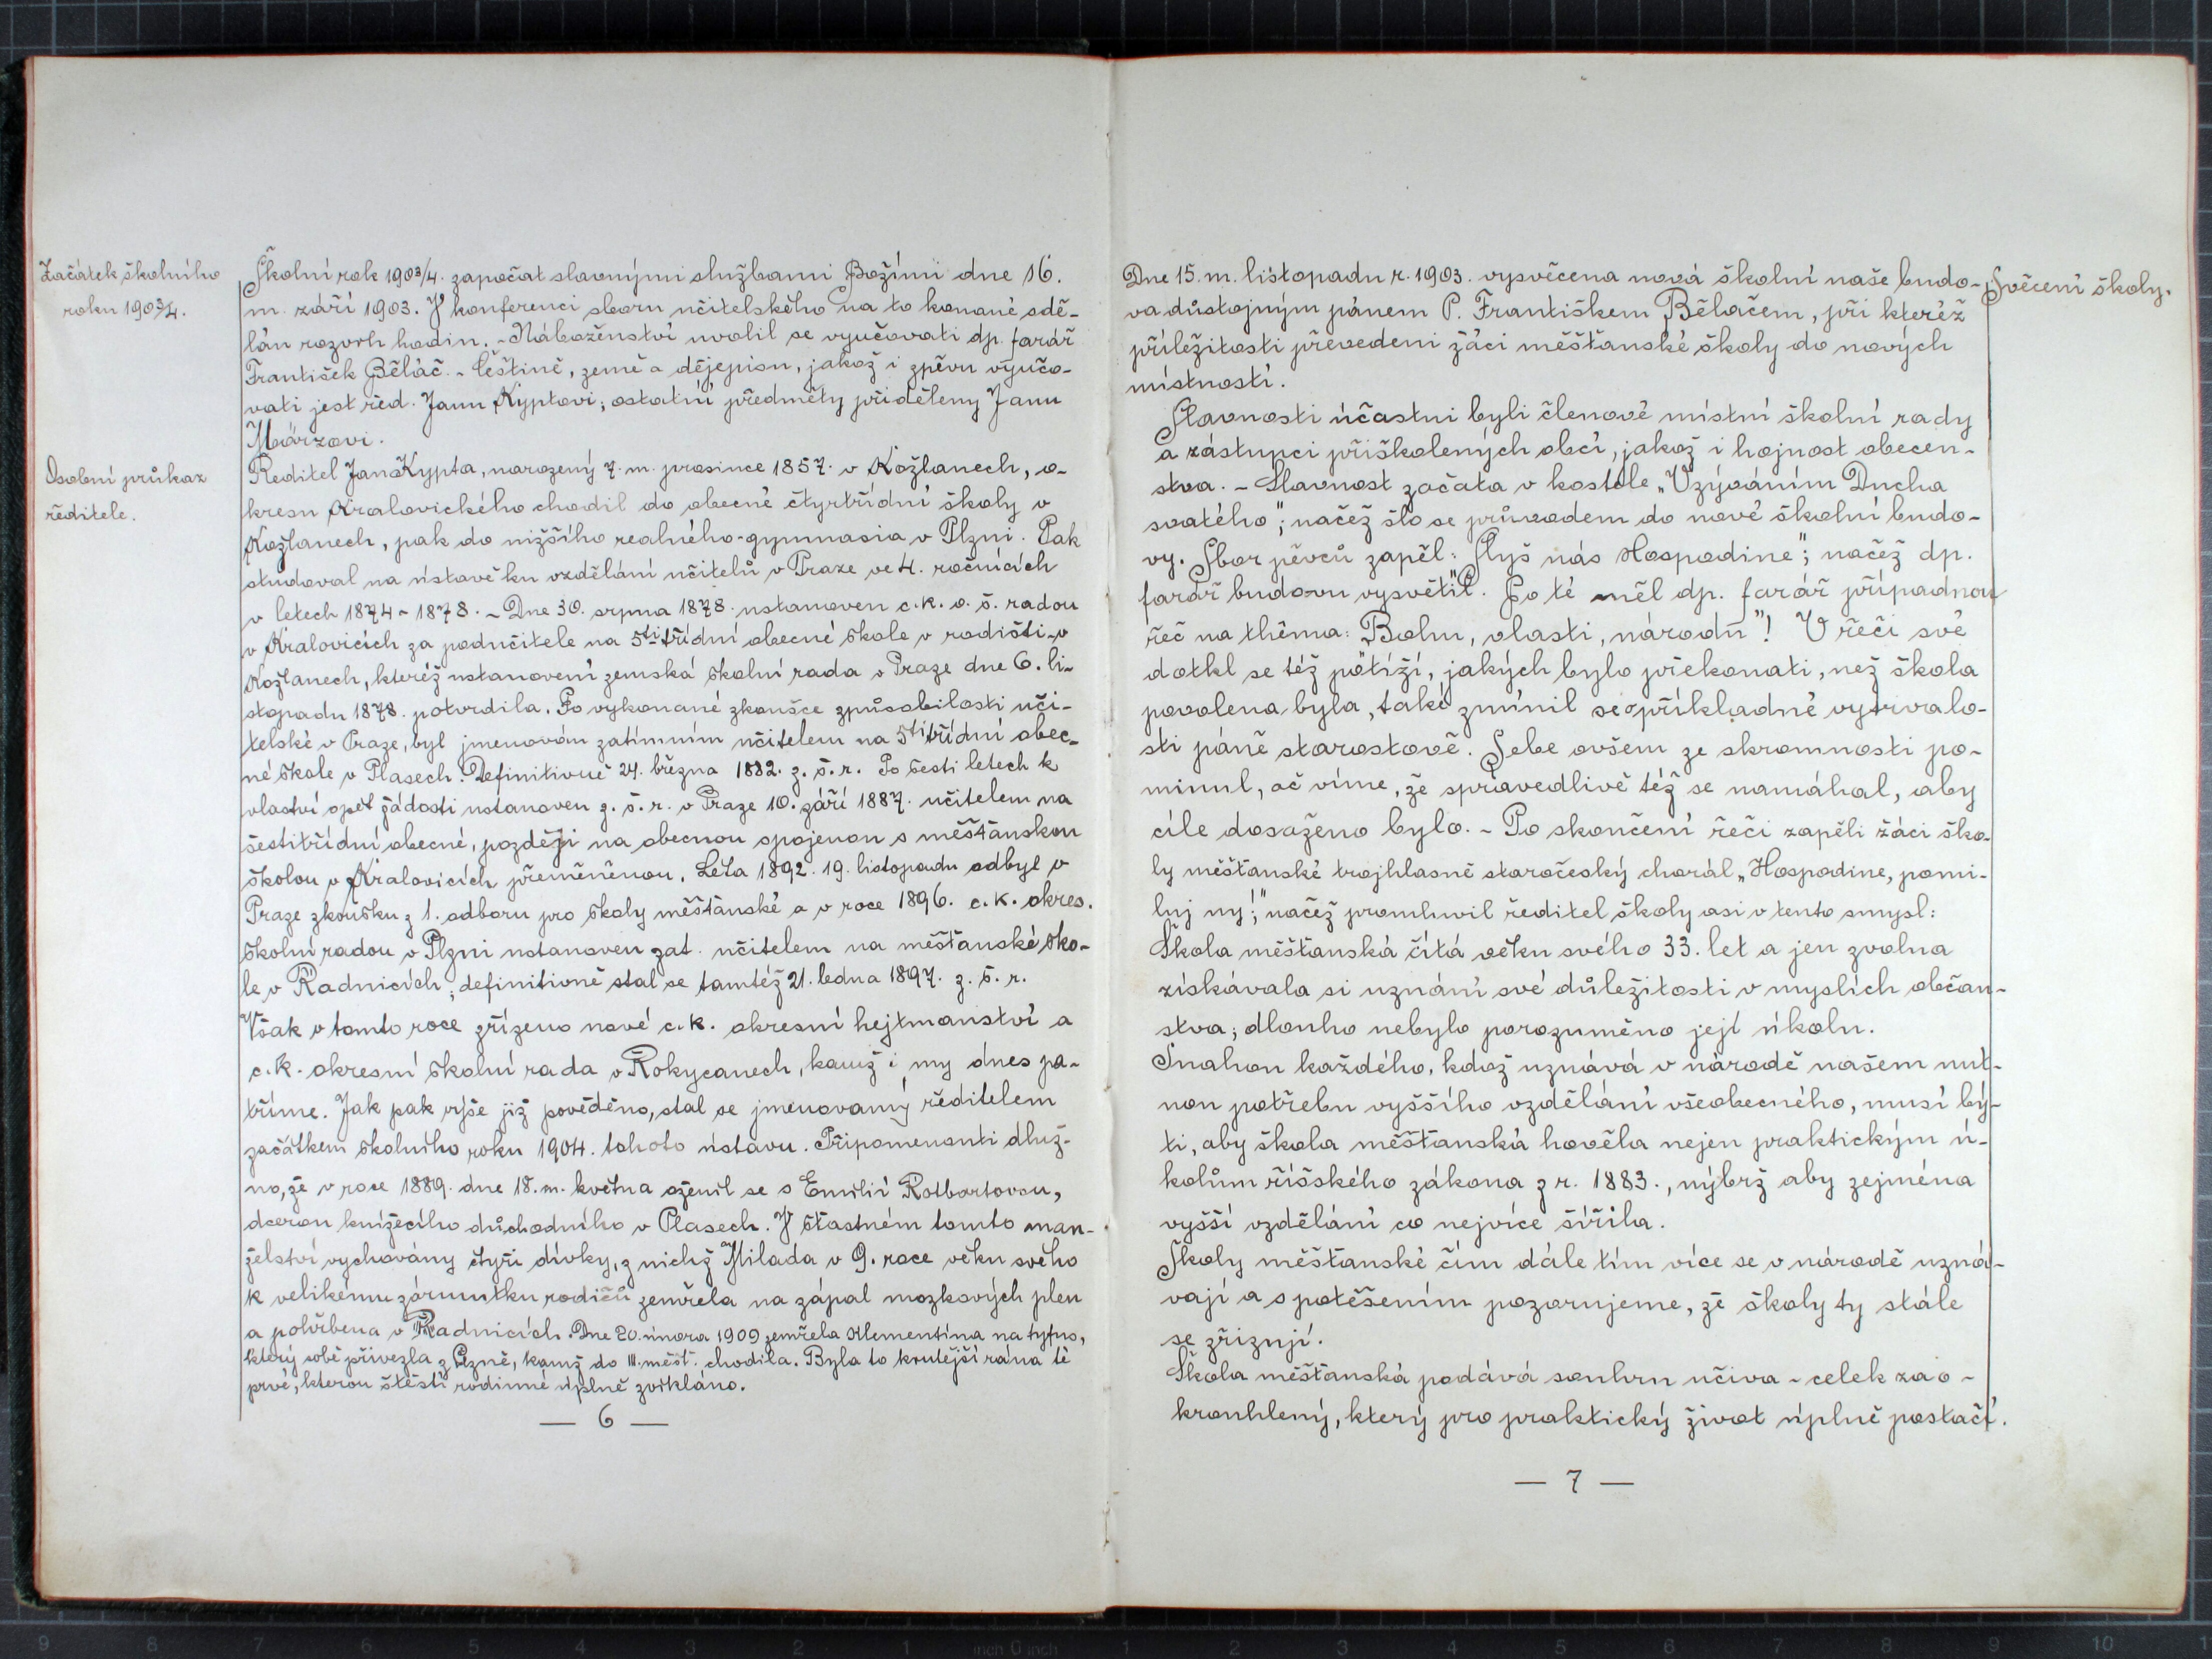 Začátek školního
roku 1903/4.
Školní rok 1903/4. započat slavnými službami Božími dne 16.
m. září 1903. V konferenci sboru učitelského na to konané sdě-
lán rozvrh hodin. - Náboženství uvolil se vyučovati dp. farář
František Běláč. - Češtině, země a dějepisu, jakož i zpěvu vyučo-
vati jest řed. Janu Kyptovi; ostatní předměty přiděleny Janu
Márzovi.
Osobní průkaz
ředitele.
Ředitel Jan Kypta, narozený 7. m. prosince 1857. v Kožlanech, o-
kresu Kralovického chodil do obecné čtyrtřídní školy v
Kožlanech, pak do nižšího realného-gymnasia v Plzni. Pak
studoval na ústavě ku vzdělání učitelů v Praze ve 4. ročnících
v letech 1874 - 1878. - Dne 30. srpna 1878. ustanoven c. k. o. š. radou
v Kralovicích za podučitele na 5ti třídní obecné škole v rodišti-v
Kožlanech, kteréž ustanovení zemská školní rada v Praze dne 6. li-
stopadu 1878. potvrdila. Po vykonané zkoušce způsobilosti uči-
telské v Praze, byl jmenován zatímním učitelem na 5ti třídní obec-
né škole v Plasech. Definitivně 24. března 1882. z. š. r. Po šesti letech k
vlastní opět žádosti ustanoven z. š. r. v Praze 10. září 1887. učitelem na
šestitřídní obecné, později na obecnou spojenou s měšťanskou
školou v Kralovicích přeměněnou. Léta 1892. 19. listopadu odbyl v
Praze zkoušku z 1. odboru pro školy měšťanské a v roce 1896. c. k. okres.
školní radou v Plzni ustanoven zat. učitelem na měšťanské ško-
le v Radnicích; definitivně stal se tamtéž 21. ledna 1897. z. š. r.
Však v tomto roce zřízeno nové c. k. okresní hejtmanství a
c. k. okresní školní rada v Rokycanech, kamž i my dnes pa-
tříme. Jak pak výše již pověděno, stal se jmenovaný ředitelem
začátkem školního roku 1904. tohoto ústavu. Připomenouti dluž-
no, že v roce 1889. dne 18. m. května oženil se s Emilií Rotbartovou,
dcerou knížecího důchodního v Plasech. V šťastném tomto man-
želství vychovány čtyři dívky, z nichž Milada v 9. roce věku svého
k velikému zármutku rodičů zemřela na zápal mozkových plen
a pohřbena v Radnicích. Dne 20. února 1909 zemřela Klementína na tyfus,
který sobě přivezla z Plzně, kamž do III. měšť. chodila. Byla to krutější rána té
prvé, kterou štěstí rodinné úplně zvikláno.
— 6 —
Svěcení školy.
Dne 15. m. listopadu r. 1903. vysvěcena nová školní naše budo-
va důstojným pánem P. Františkem Běláčem, při kteréž
příležitosti převedeni žáci měšťanské školy do nových
místností.
Slavnosti účastni byli členové místní školní rady
a zástupci přiškolených obcí, jakož i hojnost obecen-
stva. - Slavnost začata v kostele „Vzýváním Ducha
svatého"; načež šlo se průvodem do nové školní budo-
vy. Sbor pěvců zapěl: „Slyš nás Hospodine"; načež dp.
farář budovu vysvětil. Po té měl dp. farář případnou
řeč na théma: „Bohu, vlasti, národu"! V řeči své
dotkl se též potíží, jakých bylo překonati, než škola
povolena byla, také zmínil se o příkladné vytrvalo-
sti páně starostově. Sebe ovšem ze skromnosti po-
minul, ač víme, že spravedlivě též se namáhal, aby
cíle dosaženo bylo. - Po skončení řeči zapěli žáci ško-
ly měšťanské trojhlasně staročeský chorál „Hospodine, pomi-
luj ny!"; načež promluvil ředitel školy asi v tento smysl:
Škola měšťanská čítá věku svého 33. let a jen zvolna
získávala si uznání své důležitosti v myslích občan-
stva; dlouho nebylo porozuměno její úkolu.
Snahou každého, kdož uznává v národě našem nut-
nou potřebu vyššího vzdělání všeobecného, musí bý-
ti, aby škola měšťanská hověla nejen praktickým ú-
kolům říšského zákona z r. 1883., nýbrž aby zejména
vyšší vzdělání co nejvíce šířila.
Školy měšťanské čím dále tím více se v národě uzná-
vají a s potěšením pozorujeme, že školy ty stále
se zřizují.
Škola měšťanská podává souhrn učiva - celek zao-
krouhlený, který pro praktický život úplně postačí.
— 7 —